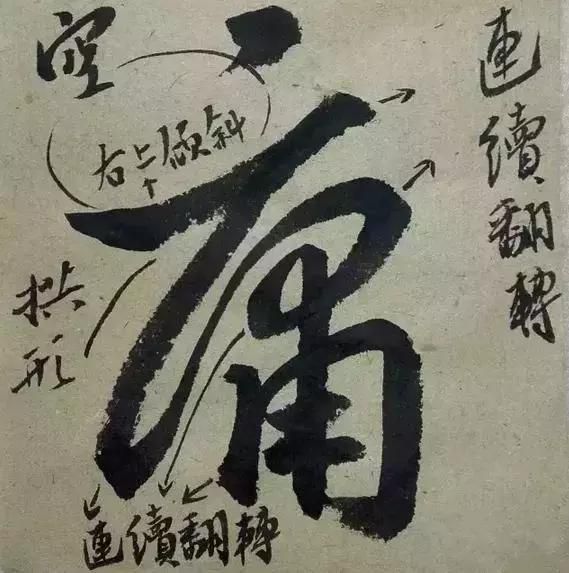 連續翻轉
空
右上傾斜
痛
拱形
連續翻轉